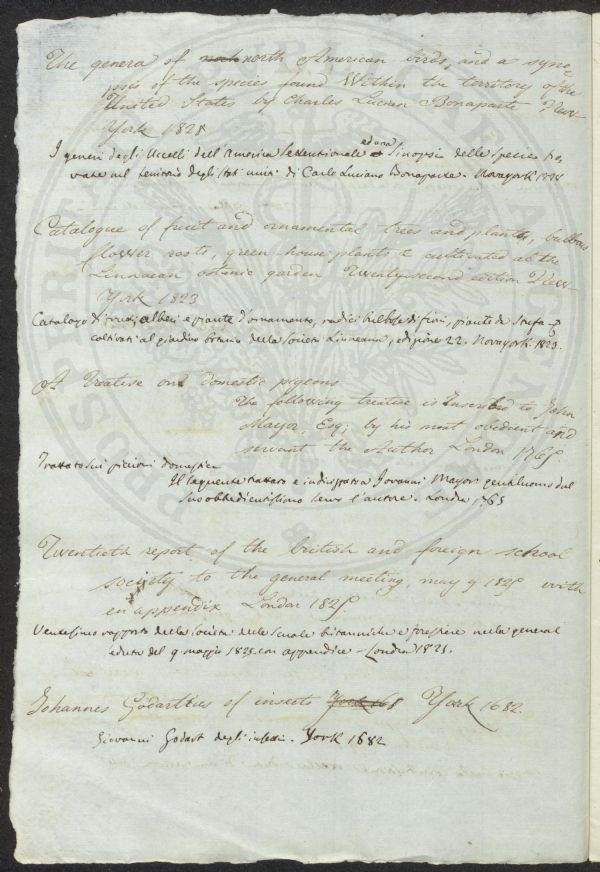 The genera of north American birds, and a syno=
psis of the species found Within the territory of the
United States by Charles Lucien Bonaparte New-
York 1828
I generi degli Uccelli dell'America Settentrionale ed una Sinopsi delle Specie tro
vate nel territorio degli Stati uniti di Carlo Luciano Bonaparte. Novayork 1828
Catalogue of fruit and ornamental trees and plants, bulbous
flower roots, green house plants & cultivated at the
Linnaean botanic garden Twenty-second edition New-
York 1823
Catalogo di frutti, alberi e piante d'ornamento, radici bulbose di fiori, piante da Stufa
coltivati al giardino botanico della Società Linneana, edizione 22. Novayork. 1823.
A Treatise on Domestic pigeons
The following treatise is Inscribed to John
Mayor, Esq; by his most obedient and
servant the Author London 1765
Trattato sui piccioni domestici
Il seguente trattato è indirizzato a Giovanni Mayor gentiluomo dal
Suo obbedientissimo servo l'autore. Londra 1765
Twentieth report of the british and foreign school
society to the general meeting, may 9 1825 with
en appendix London 1825
Ventesimo rapporto della Società delle Scuole britanniche e forestiere nella generale
seduta del 9 maggio 1825. con appendice - Londra 1825.
Johannes Godartius of insects York 168 York 1682.
Giovanni Godart degli insetti. York 1682